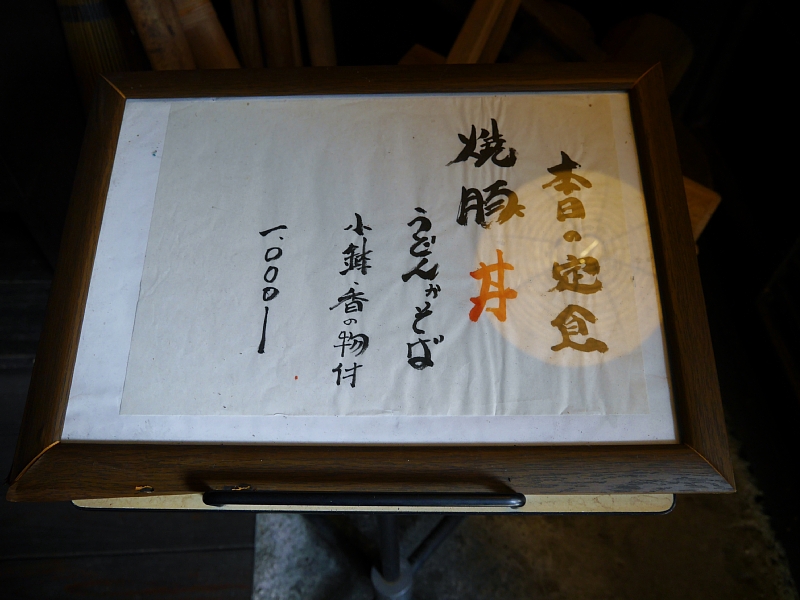 本日の定食
焼豚丼
うどんかそば
小鉢・香の物付
一、〇〇〇ー